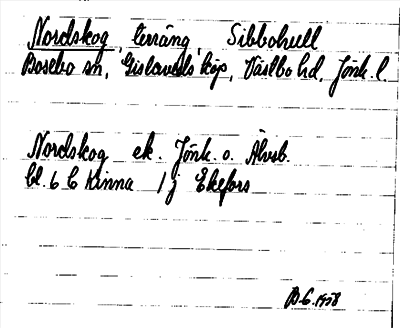 Nordskog, terräng, Sibbohult
Bosebo sn, Gislaveds köp, Västbo hd, Jönk. l.
Nordskog ek. Jönk. o. Älvsb.
bl. 6 C Kinna 1 j Ekefors
B.G. 1958